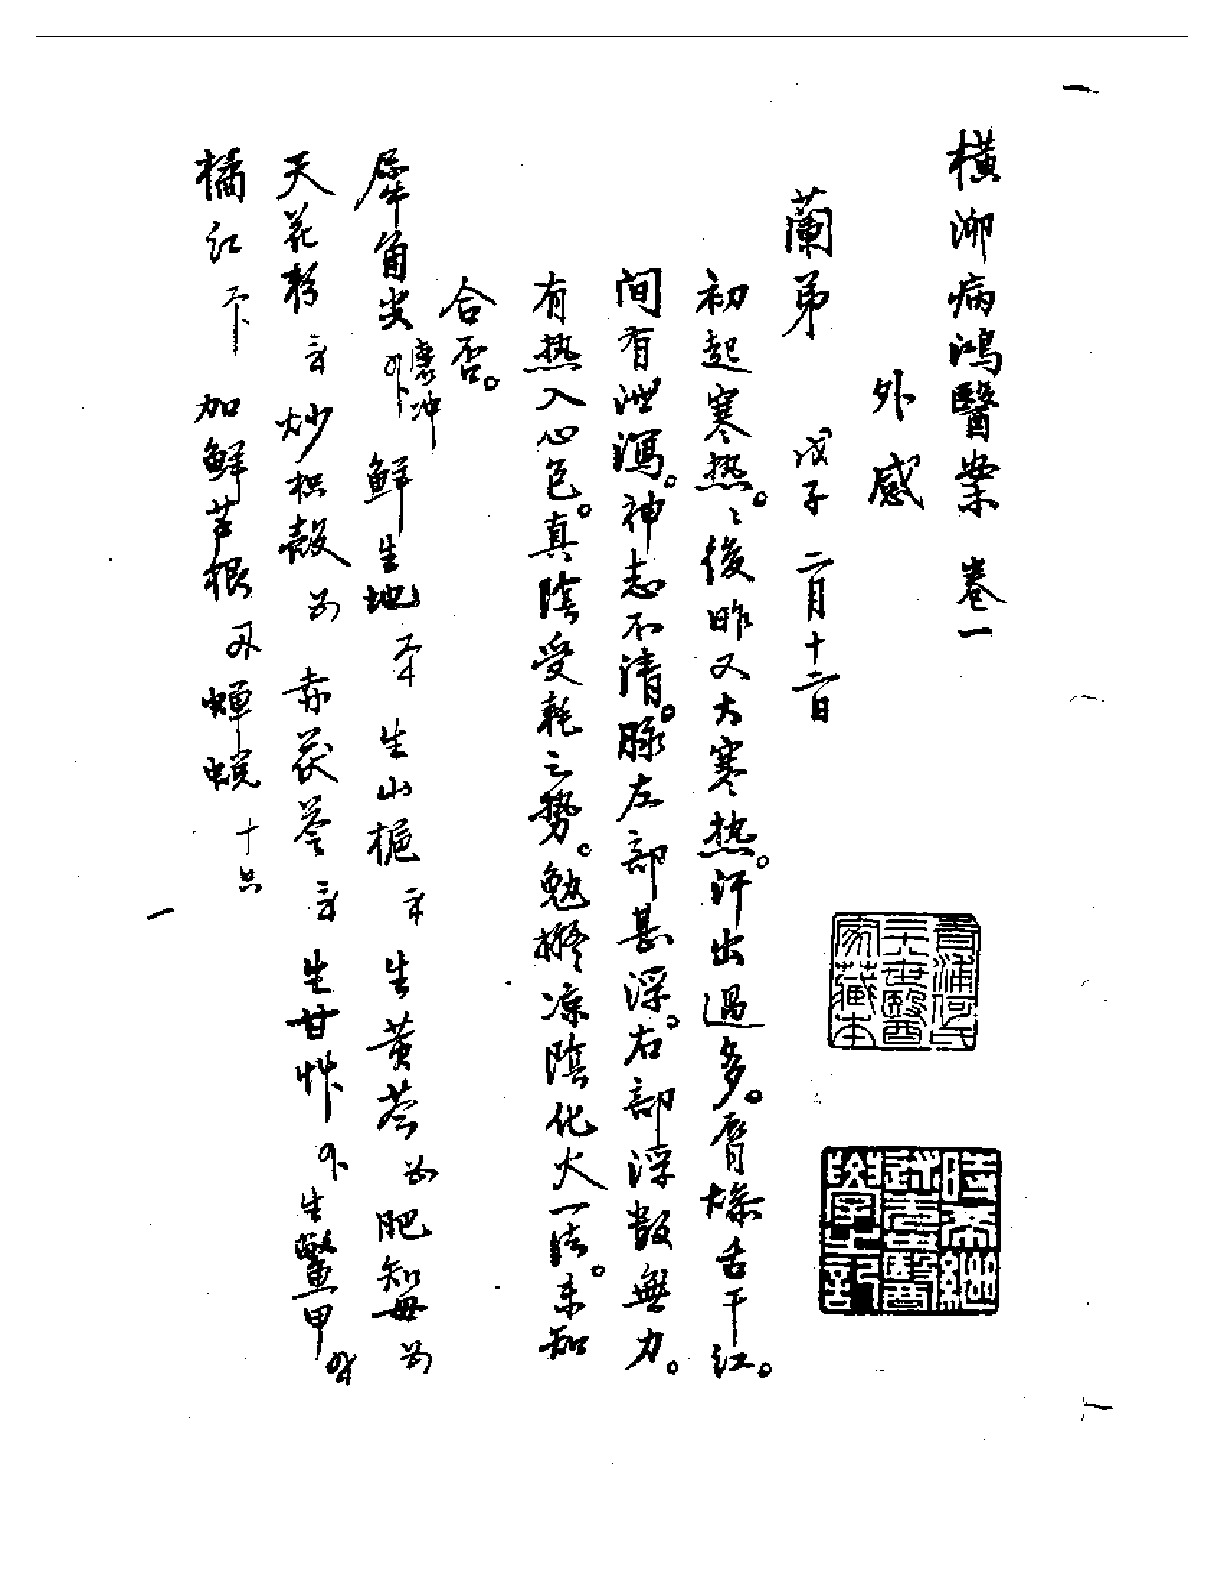 横泖病鴻醫案 卷一
外感
蘭弟 戊子 二月十二日
初起寒热。々後昨又大寒热。汗出過多。唇燥舌干红。
间有泄瀉。神志不清。脉左部甚深。右部浮数無力。
有热入心包。真陰受耗之势。勉擬凉陰化火一法。未知
合否。
犀角尖 磨冲 鲜生地 生山栀 生黄芩 肥知母
天花粉 炒枳殼 赤茯苓 生甘草 生鱉甲
橘红 加鲜芦根 蝉蜕 十只
一
青浦何氏
三十世醫
家藏本